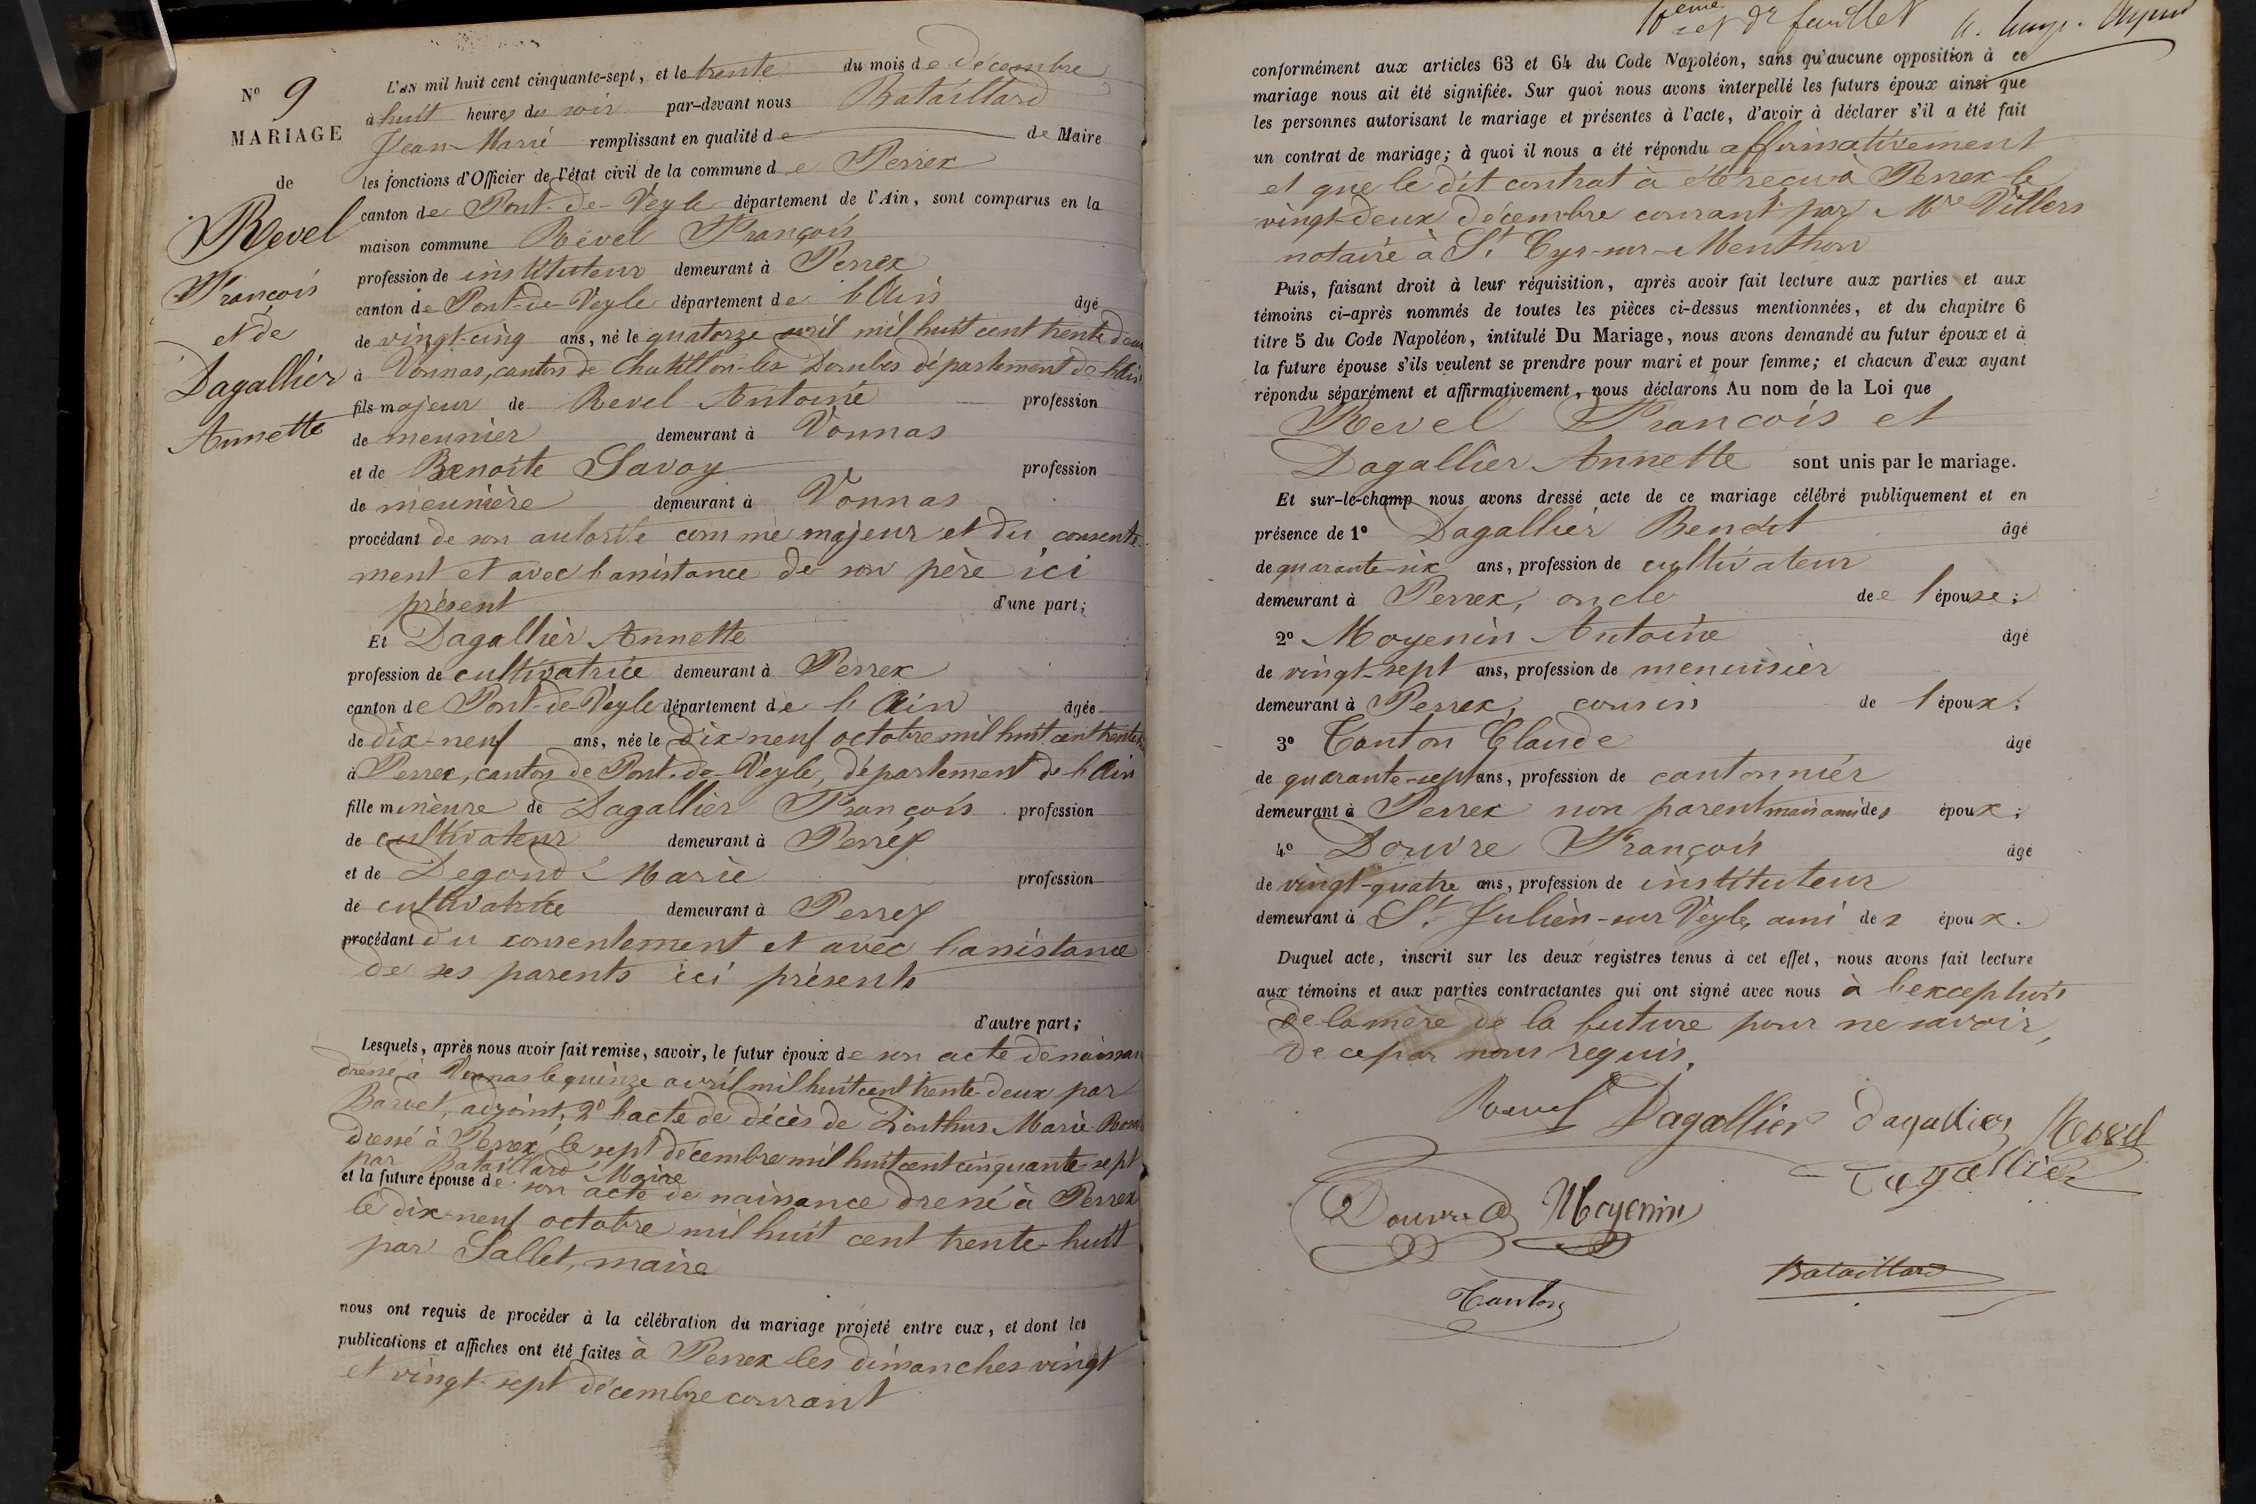 N° 9
MARIAGE
de
Revel
François
et de
Dagallier
Annette
L'AN mil huit cent cinquante-sept, et le trente du mois de décembre
à huit heures du soir par-devant nous Bataillard
Jean-Marie remplissant en qualité de de Maire
les fonctions d'Officier de l'état civil de la commune de Perrex
canton de Pont-de-Veyle département de l'Ain, sont comparus en la
maison commune Revel François
profession de instituteur demeurant à Perrex
canton de Pont-de-Veyle département de l'Ain âgé
de vingt-cinq ans, né le quatorze avril mil huit cent trente deux
à Vonnas, canton de Chatillon-les-Dombes département de l'Ain
fils majeur de Revel Antoine profession
de meunier demeurant à Vonnas
et de Benoite Savoy profession
de meunière demeurant à Vonnas
procédant de son autorité comme majeur et du consente-
ment et avec l'assistance de son père ici
présent d'une part;
Et Dagallier Annette
profession de cultivatrice demeurant à Perrex
canton de Pont-de-Veyle département de l'Ain âgée
de dix-neuf ans, née le dix-neuf octobre mil huit cent trente
à Perrex, canton de Pont-de-Veyle, département de l'Ain
fille mineure de Dagallier François profession
de cultivateur demeurant à Perrex
et de Degond Marie profession
de cultivatrice demeurant à Perrex
procédant du consentement et avec l'assistance
de ses parents ici présents
d'autre part;
Lesquels, après nous avoir fait remise, savoir, le futur époux de son acte de naissan
dressé à Vonnas le quinze avril mil huit cent trente-deux par
Barvet, adjoint; 2° l'acte de décès de Marie
dressé à Perrex le sept décembre mil huit cent cinquante-sept
par Bataillard Maire
et la future épouse de son acte de naissance dressé à Perrex
le dix-neuf octobre mil huit cent trente-huit
par Sallet, maire
nous ont requis de procéder à la célébration du mariage projeté entre eux, et dont les
publications et affiches ont été faites à Perrex les dimanches vingt
et vingt-sept décembre courant
10ème et dr feuillet
conformément aux articles 63 et 64 du Code Napoléon, sans qu'aucune opposition à ce
mariage nous ait été signifiée. Sur quoi nous avons interpellé les futurs époux ainsi que
les personnes autorisant le mariage et présentes à l'acte, d'avoir à déclarer s'il a été fait
un contrat de mariage; à quoi il nous a été répondu affirmativement
et que le dit contrat à été reçu à Perrex le
vingt-deux décembre courant par Mre Villers
notaire à St Cyr-sur-Menthon
Puis, faisant droit à leur réquisition, après avoir fait lecture aux parties et aux
témoins ci-après nommés de toutes les pièces ci-dessus mentionnées, et du chapitre 6
titre 5 du Code Napoléon, intitulé Du Mariage, nous avons demandé au futur époux et à
la future épouse s'ils veulent se prendre pour mari et pour femme; et chacun d'eux ayant
répondu séparément et affirmativement, nous déclarons Au nom de la Loi que
Revel François et
Dagallier Annette sont unis par le mariage.
Et sur-le-champ nous avons dressé acte de ce mariage célébré publiquement et en
présence de 1° Dagallier Benoit âgé
de quarante-six ans, profession de cultivateur
demeurant à Perrex, oncle de l'épouse;
2° Moyenin Antoine âgé
de vingt-sept ans, profession de menuisier
demeurant à Perrex, cousin de l'époux;
3° Tanton Claude âgé
de quarante-sept ans, profession de cantonnier
demeurant à Perrex non parent mais ami des époux;
4° Douvre François âgé
de vingt-quatre ans, profession de instituteur
demeurant à St Julien-sur Veyle, ami des époux.
Duquel acte, inscrit sur les deux registres tenus à cet effet, nous avons fait lecture
aux témoins et aux parties contractantes qui ont signé avec nous à l'exception
de la mère de la future pour ne savoir,
de ce par nous requis.
Revel Dagallier dagallier Revel
Dagallier
Douvre Moyenin
Tanton Bataillard